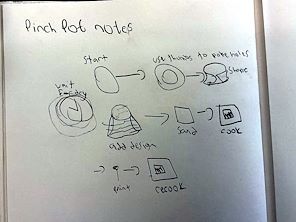 Pinch Pot notes
Start
use thumbs to poke holes
Shape
wait
add design
sand
cook
print
recook